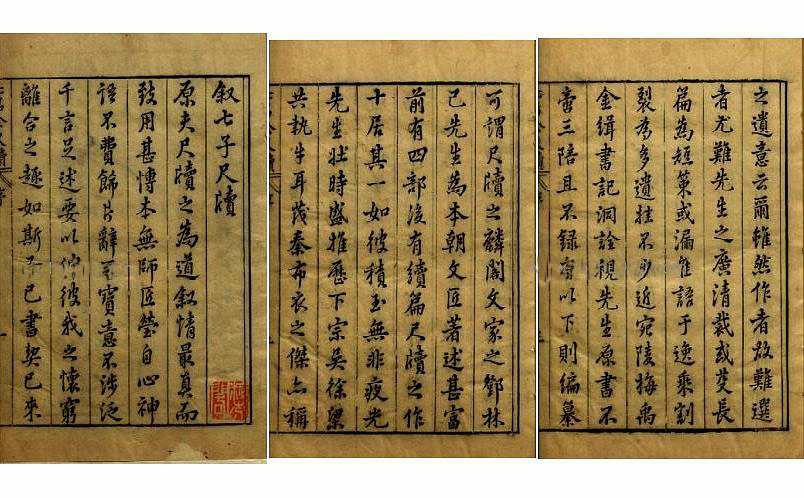 叙七子尺牘
原夫尺牘之為道叙情最真而
致用甚博本無師匠瑩自心神
語不費飾片辭至寶意不涉泛
千言足述要以伸彼我之懷窮
離合之趣如斯而已書契已來
可謂尺牘之麟閣文家之鄧林
已先生為本朝文匠著述甚富
前有四部後有續篇尺牘之作
十居其一如彼積玉無非夜光
先生壯時盛推歷下宗吳徐梁
共執牛耳茂秦布衣之傑亦稱
之遺意云爾雖然作者故難選
者尤難先生之廣清裁或芟長
篇為短策或漏隹語于逸乘割
裂為多遺挂不少近宛陵梅禹
金緝書記洞詮視先生原書不
啻三陪且不錄以下則編纂